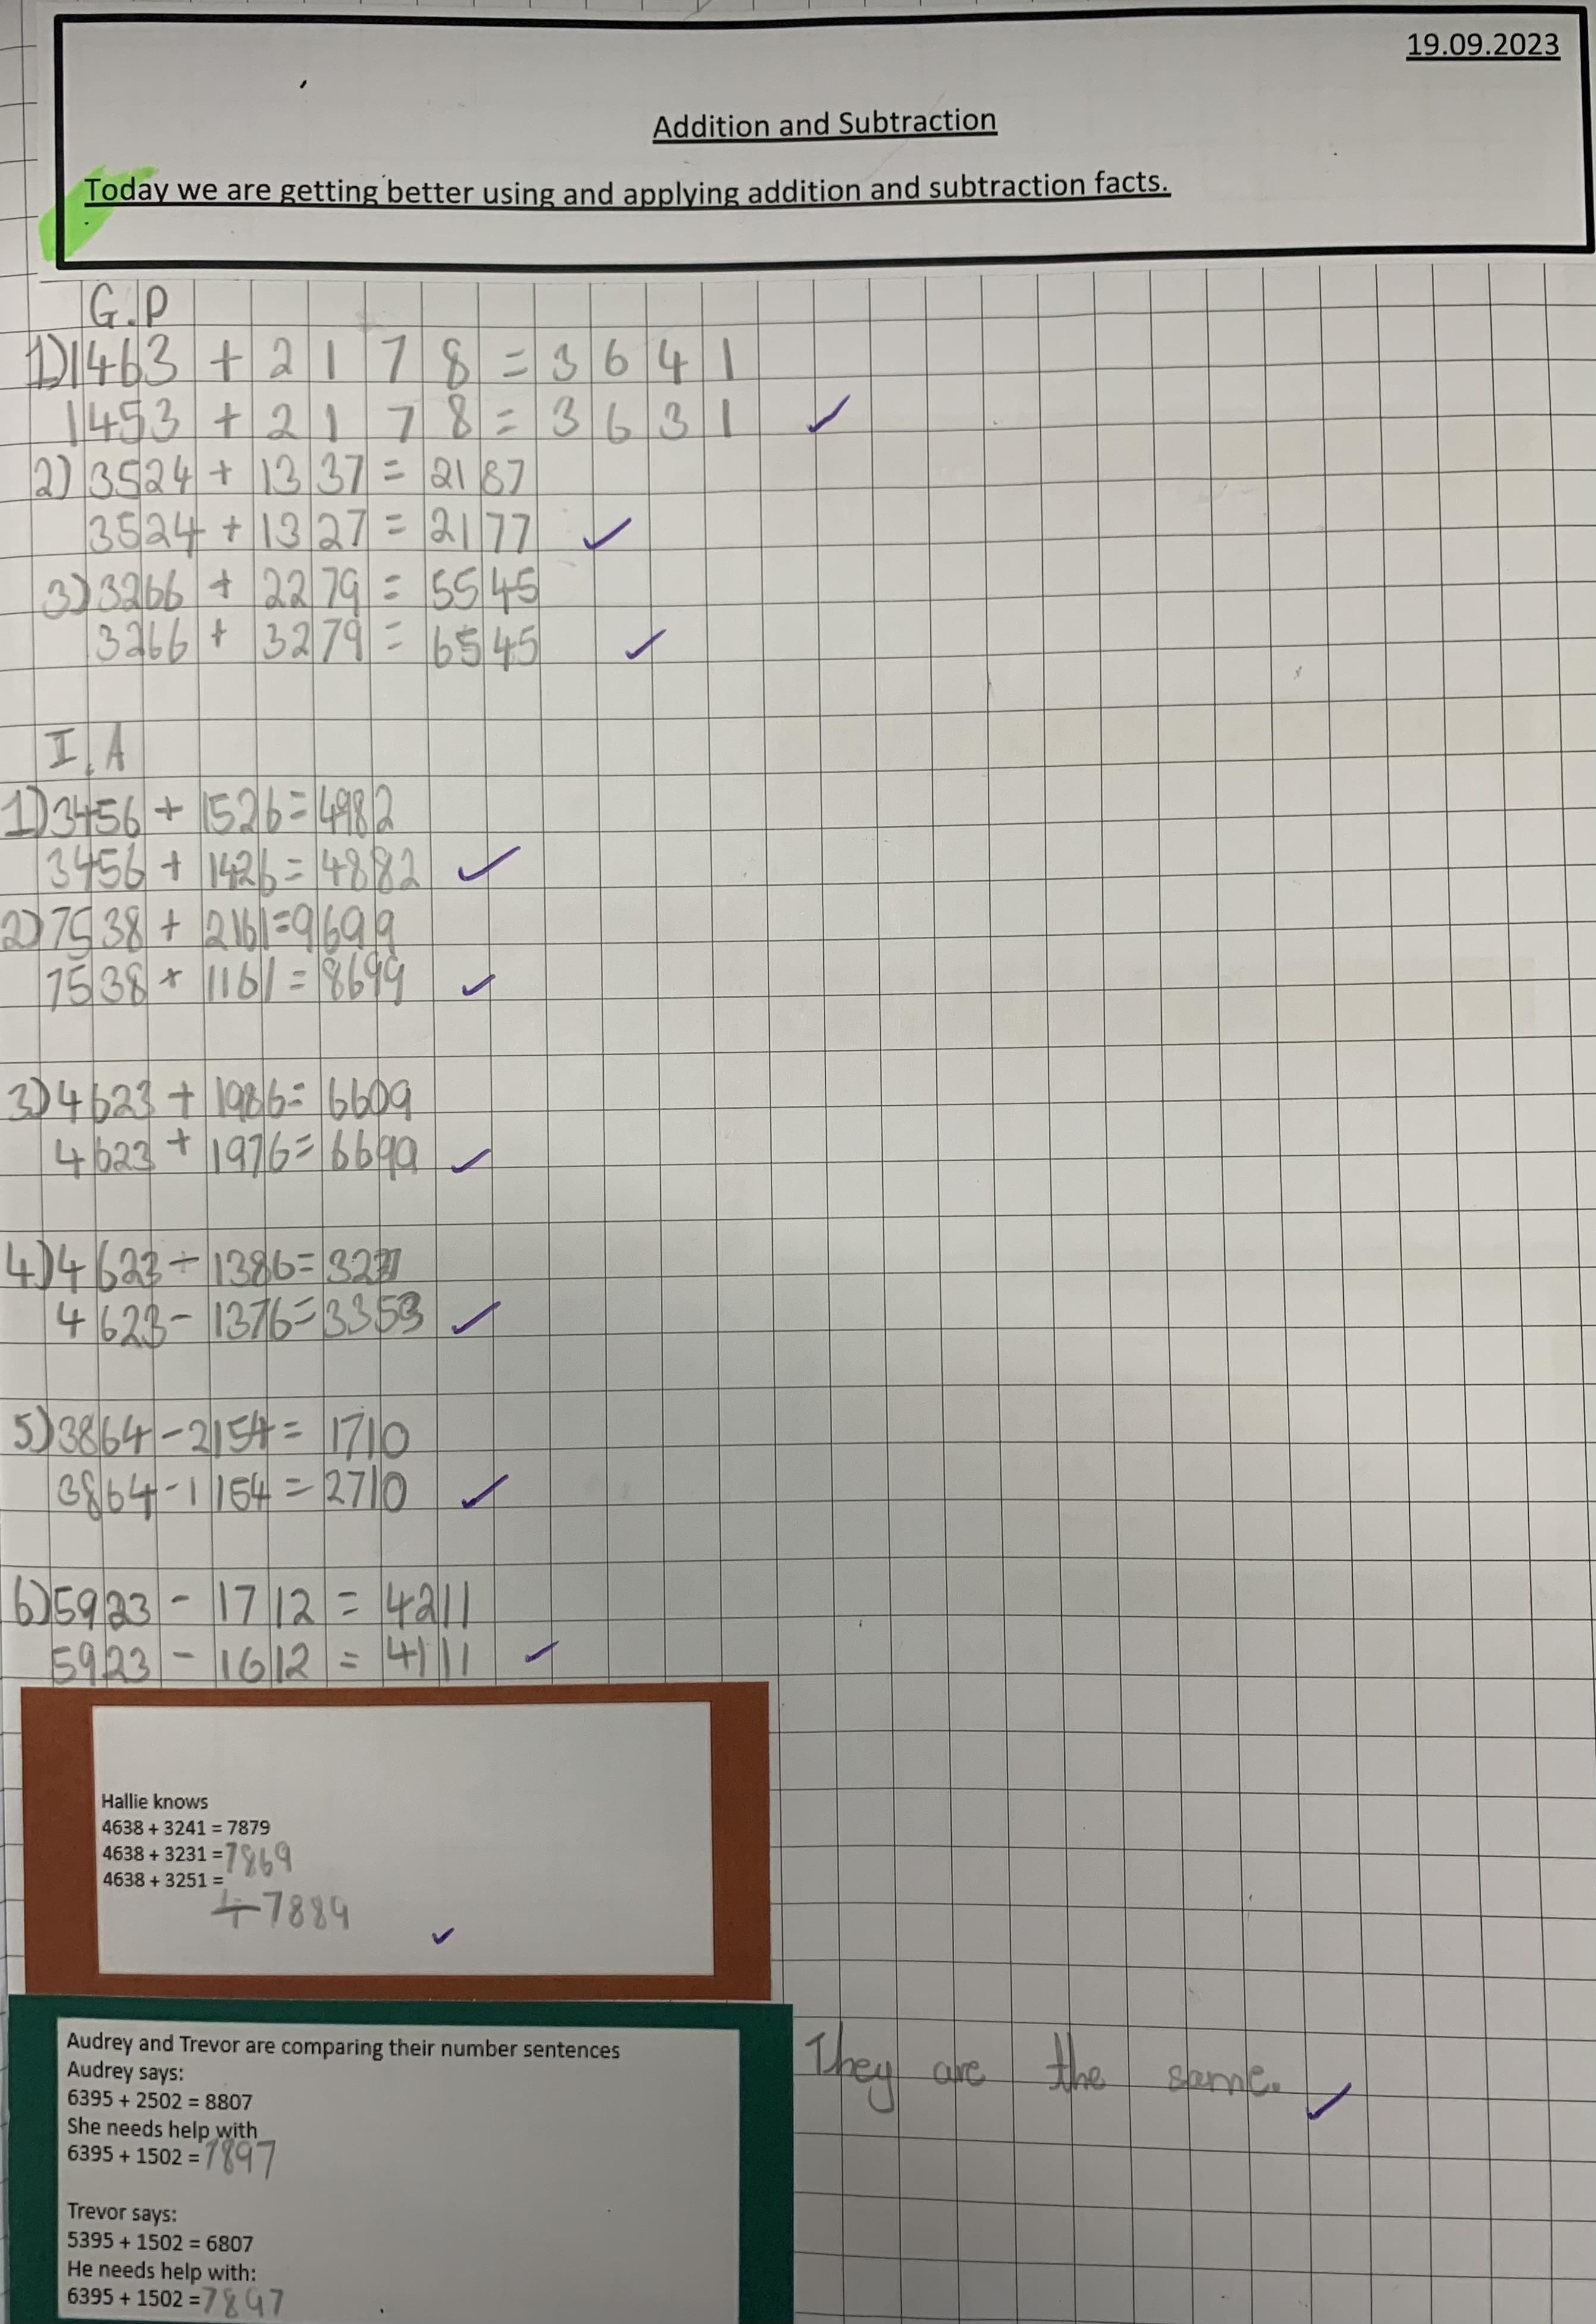 19.09.2023
Addition and Subtraction
Today we are getting better using and applying addition and subtraction facts.
G.P
1) 1463 + 2178 = 3641
1453 + 2178 = 3631
2) 3524 + 1337 = 2187
3524 + 1327 = 2177
3) 3266 + 2279 = 5545
3266 + 3279 = 6545
I.A
1) 3456 + 1526 = 4982
3456 + 1426 = 4882
2) 7538 + 2161 = 9699
7538 + 1161 = 8699
3) 4623 + 1986 = 6609
4623 + 1976 = 6699
4) 4623 - 1386 =
4623 - 1376 = 3353
5) 3864 - 2154 = 1710
3864 - 1154 = 2710
6) 5923 - 1712 = 4211
5923 - 1612 = 4111
Hallie knows
4638 + 3241 = 7879
4638 + 3231 = 7869
4638 + 3251 =
7889
Audrey and Trevor are comparing their number sentences
Audrey says:
6395 + 2502 = 8807
She needs help with
6395 + 1502 = 7897
They are the same.
Trevor says:
5395 + 1502 = 6807
He needs help with:
6395 + 1502 = 7897